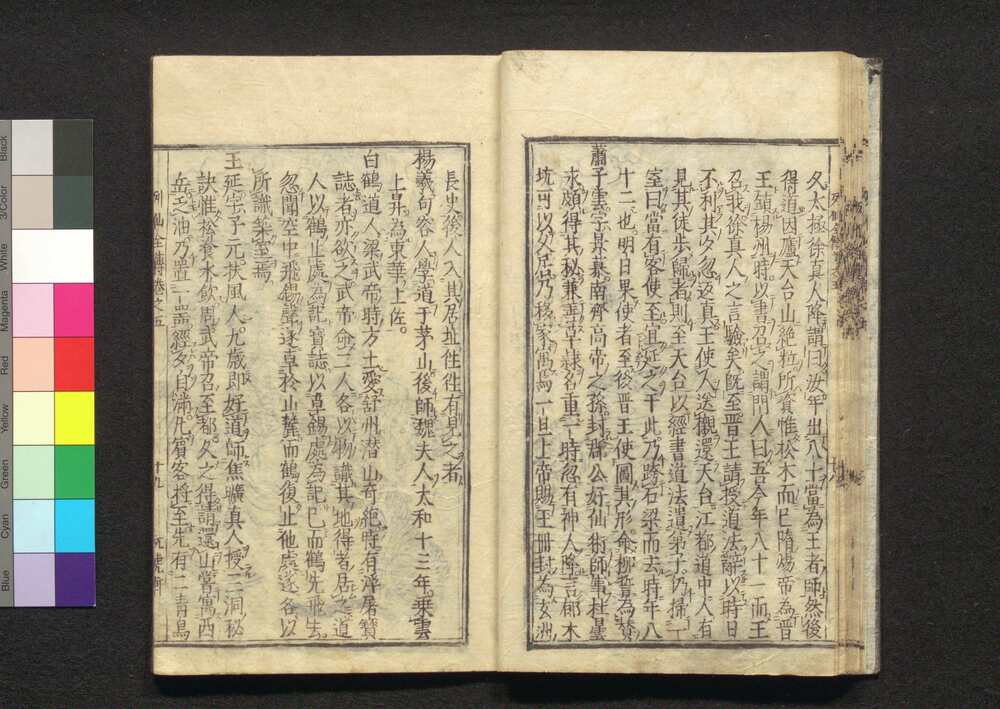 夕太極徐真人降謂曰汝年出八十當為王者師然後
得道因廬天台山絶粒所資惟松木而已隋煬帝為晋
王鎮楊州時以書召之謂門人曰吾今年八十一而王
召我徐真人之言驗矣既至晋王請授道法辭以時日
不利其夕忽返真王使人送櫬還天台江都道中人有
見其徒步歸者則至天台以經書道法遺弟子乃掃一
室曰當有客使至宜延之于此乃跨石梁而去時年八
十二也明日果使者至後晋王使圖其形命柳䛒為贊
蕭子雲字景喬南齊高帝之孫封郡公好仙術師事杜曇
永頗得其秘兼善草隷名重一時忽有神人降言郁木
坑可以久居乃移家寓焉一旦上帝賜王冊封為玄洲
長史後人入其居址往往有見之者
楊羲句容人學道于茅山後師魏夫人太和十三年乗雲
上昇為東華上佐。
白鶴道人梁武帝時方士愛舒州潜山竒絶時有浮屠寳
誌者亦欲之武帝命二人各以物識其地得者居之道
人以鶴止處為記寳誌以卓錫處為記已而鶴先飛去
忽聞空中飛錫聲遂卓於山麓而鶴復止他處遂各以
所識築室焉
王延字子元扶風人九歲即好道師焦曠真人授三洞秘
訣惟松飡水飲周武帝召至都久之得請還山當寓西
岳乏油乃置一器經夕自滿凡賓客将至先有二青鳥
列仙全傳卷之五
十九
Black
3/Color
White
Magenta
Red
Yellow
Green
Cyan
Blue